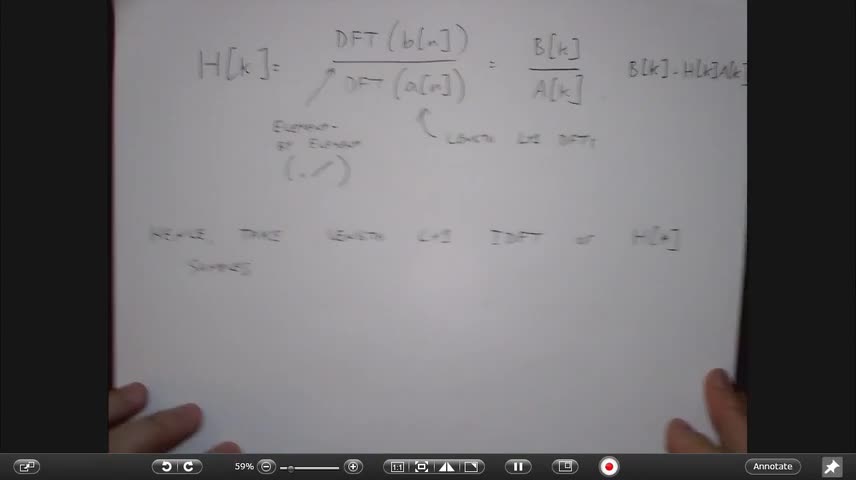 H[k] = DFT(b[n]) / DFT(a[n]) = B[k] / A[k]
B[k] = H[k]A[k]
ELEMENT-
BY ELEMENT
(./)
LENGTH L+1 DFTs
HENCE, TAKE LENGTH L+1 IDFT OF H[k]
59%
1:1
Annotate